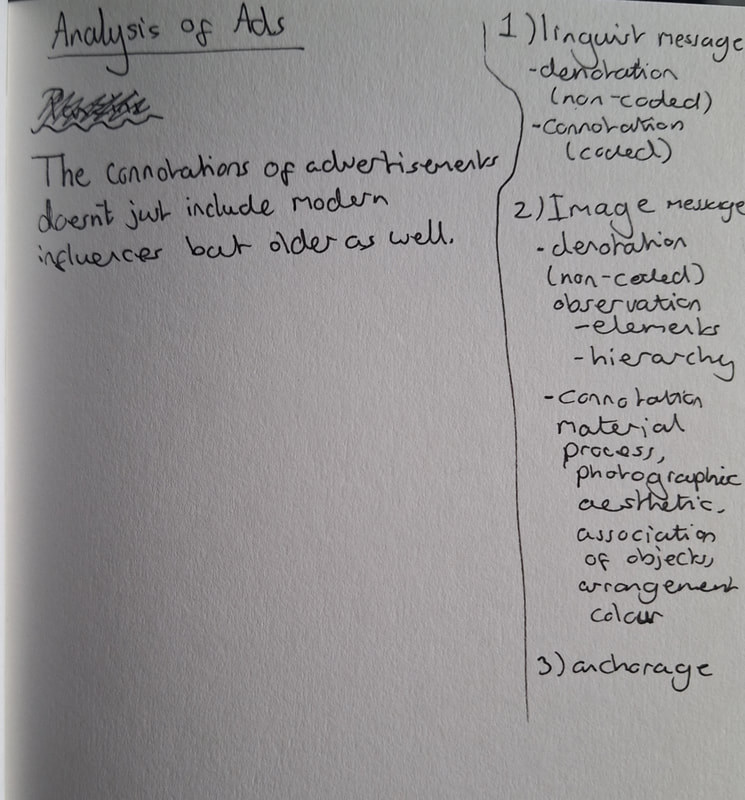 Analysis of Ads
The connotations of advertisements
doesn't just include modern
influences but older as well.
1) linguist message
- denotation
(non-coded)
- connotation
(coded)
2) Image message
- denotation
(non-coded)
observation
- elements
- hierarchy
- connotation
material
process,
photographic
aesthetic,
association
of objects,
arrangement
colour
3) anchorage